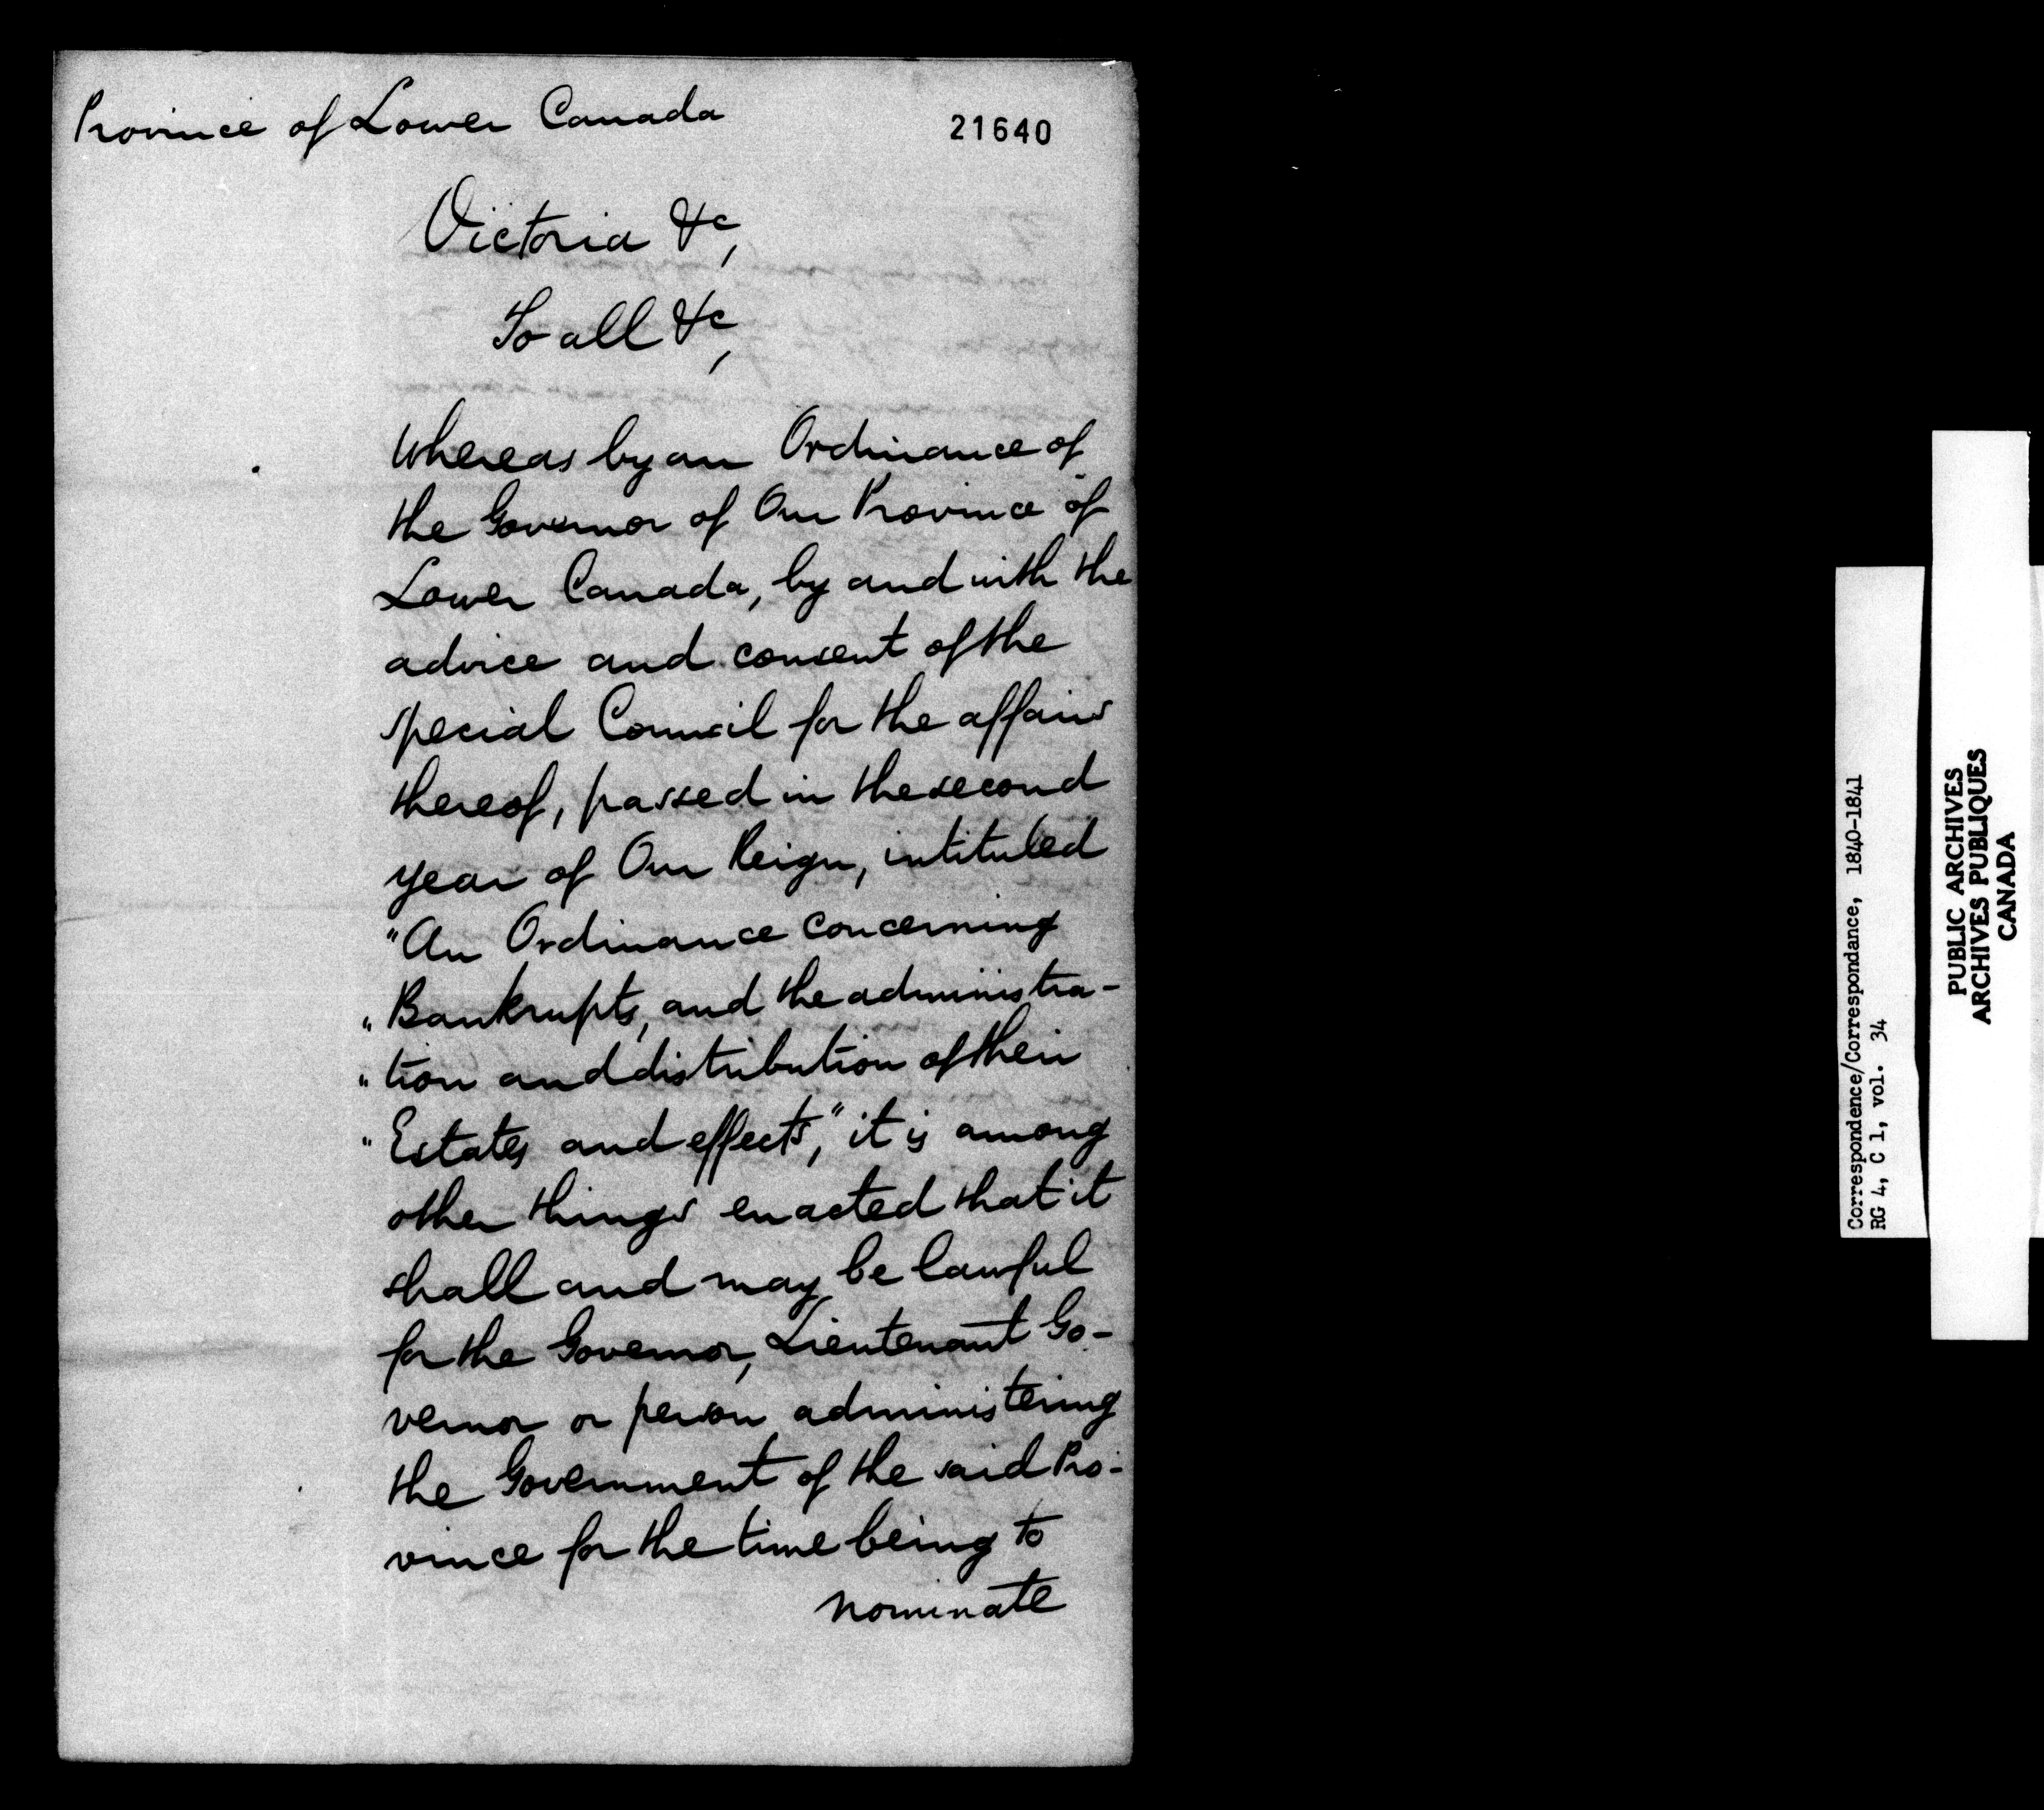 Province of Lower Canada
21640
Victoria &c,
To all &c,
Whereas by an Ordinance of
the Governor of Our Province of
Lower Canada, by and with the
advice and consent of the
special Council for the affairs
thereof, passed in the second
year of Our Reign, intituled
"An Ordinance concerning
"Bankrupts, and the administra-
"tion and distribution of their
"Estates and effects," it is among
other things enacted that it
shall and may be lawful
for the Governor, Lieutenant Go-
vernor or person administering
the Government of the said Pro-
vince for the time being to
nominate
Correspondence/Correspondance, 1840-1841
RG 4, C 1, vol. 34
PUBLIC ARCHIVES
ARCHIVES PUBLIQUES
CANADA